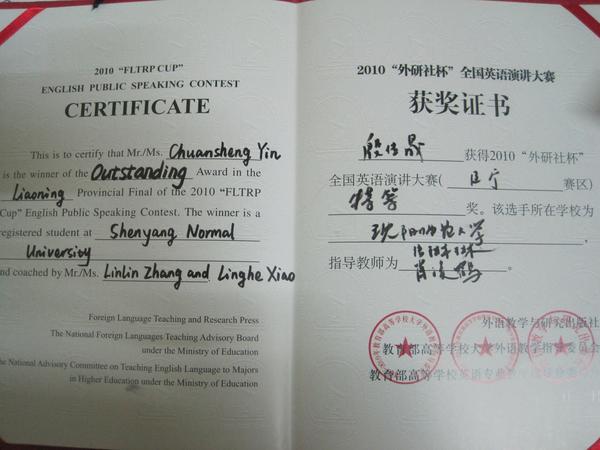 2010 "FLTRP CUP"
ENGLISH PUBLIC SPEAKING CONTEST
CERTIFICATE
This is to certify that Mr./Ms. Chuansheng Yin
is the winner of the Outstanding Award in the
Liaoning Provincial Final of the 2010 "FLTRP
Cup" English Public Speaking Contest. The winner is a
registered student at Shenyang Normal
University
and coached by Mr./Ms. Linlin Zhang and Linghe Xiao
Foreign Language Teaching and Research Press
The National Foreign Languages Teaching Advisory Board
under the Ministry of Education
The National Advisory Committee on Teaching English Language to Majors
in Higher Education under the Ministry of Education
2010 “外研社杯” 全国英语演讲大赛
获奖证书
殷传晟 获得2010 “外研社杯”
全国英语演讲大赛( 辽宁 赛区)
特等 奖。该选手所在学校为
沈阳师范大学
指导教师为 肖凌鹤 。
外语教学与研究出版社
教育部高等学校大学外语教学指导委员会
教育部高等学校英语专业教学